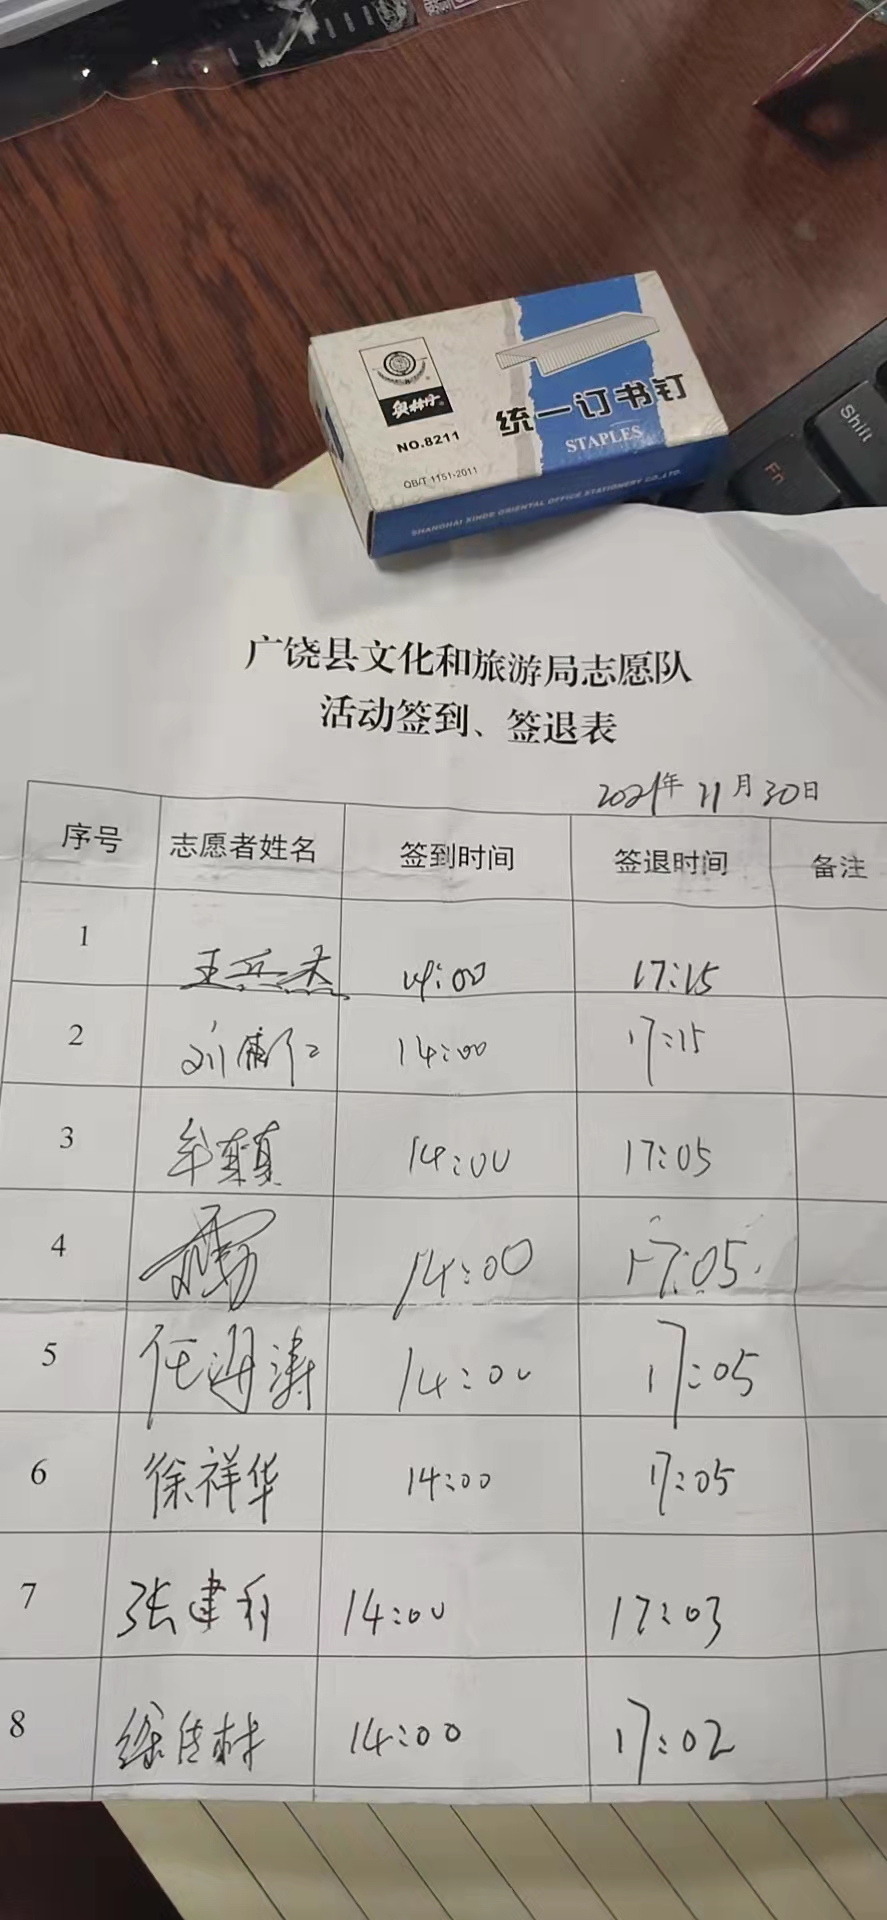 奥林丹
NO.8211
统一订书钉
STAPLES
QB/T 1151-2011
SHANGHAI XINDE ORIENTAL OFFICE STATIONERY CO.,LTD.
Shift
Fn
广饶县文化和旅游局志愿队
活动签到、签退表
2021年 11月30日
序号 志愿者姓名 签到时间 签退时间 备注
1 王兵杰 14:00 17:15
2 14:00 17:15
3 牟真真 14:00 17:05
4 14:00 17:05
5 任海涛 14:00 17:05
6 徐祥华 14:00 17:05
7 张建利 14:00 17:03
8 徐佳林 14:00 17:02